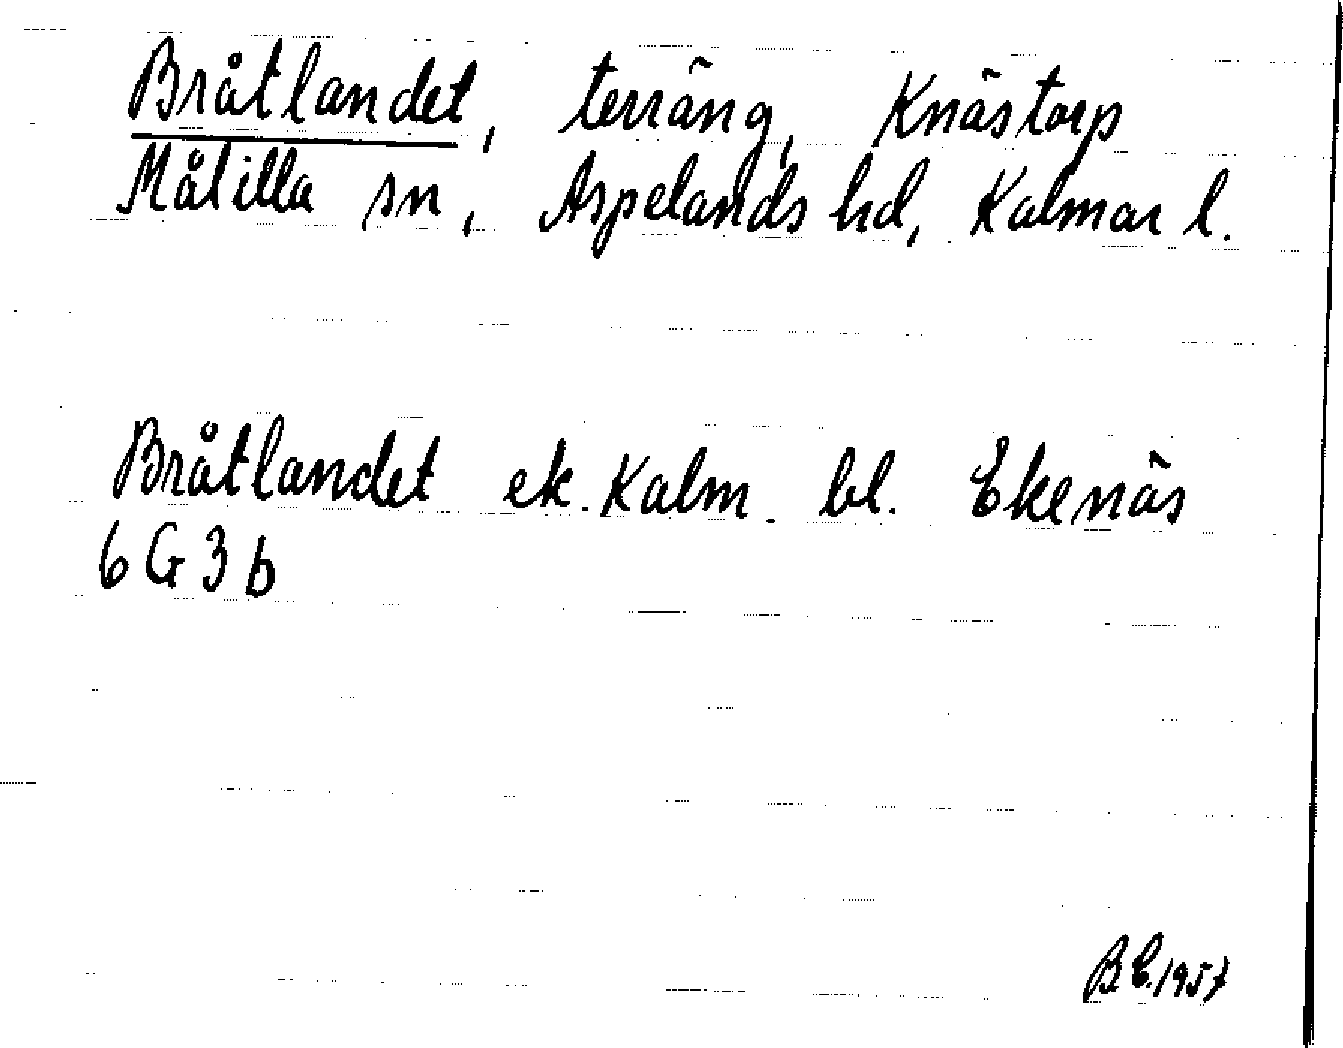 Bråtlandet, terräng, Knästorp
Målilla sn, Aspelands hd, Kalmar l.
Bråtlandet ek. Kalm. bl. Ekenäs
6G3b
B.E. 1957